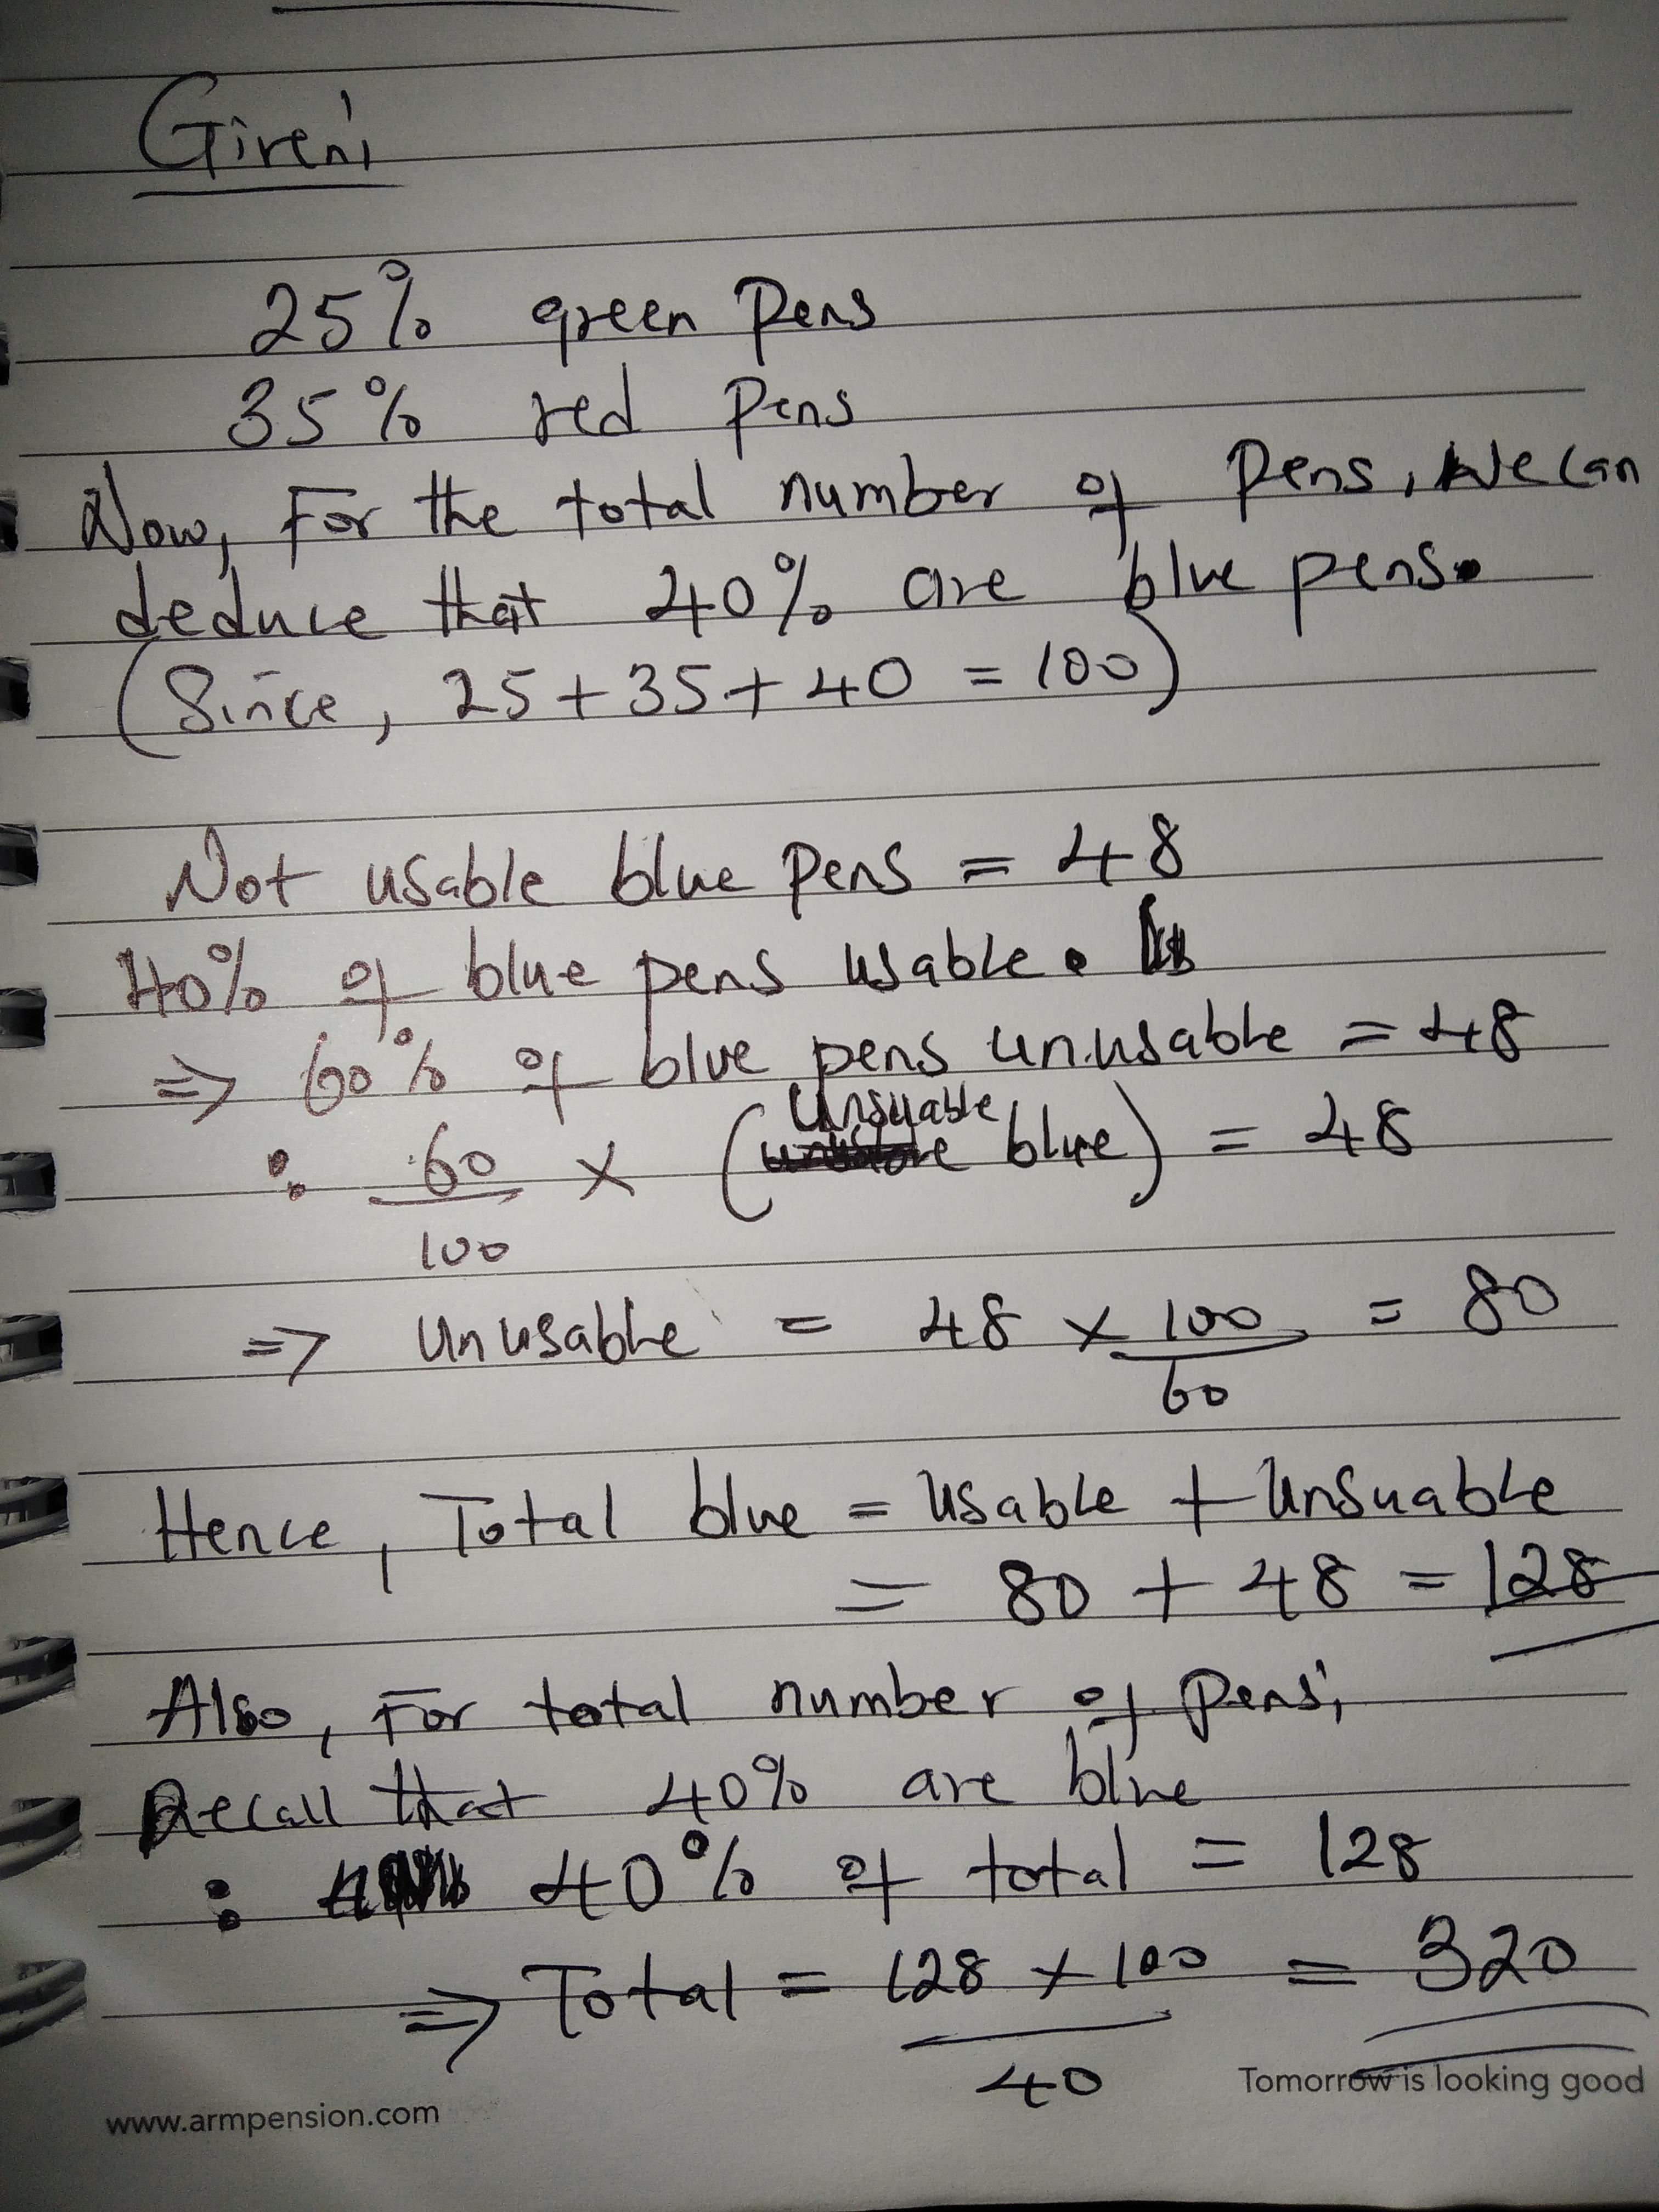 Given;
25% green Pens
35% red Pens
Now, For the total number of Pens, We can
deduce that 40% are blue pens.
(Since, 25 + 35 + 40 = 100)
Not usable blue Pens = 48
40% of blue pens usable.
=> 60% of blue pens unusable = 48
: 60/100 × (Unsuable blue) = 48
=> Unusable = 48 × 100/60 = 80
Hence, Total blue = Usable + Unsuable
= 80 + 48 = 128
Also, For total number of Pens;
Recall that 40% are blue
: 40% of total = 128
=> Total = 128 × 100/40 = 320
Tomorrow is looking good
www.armpension.com